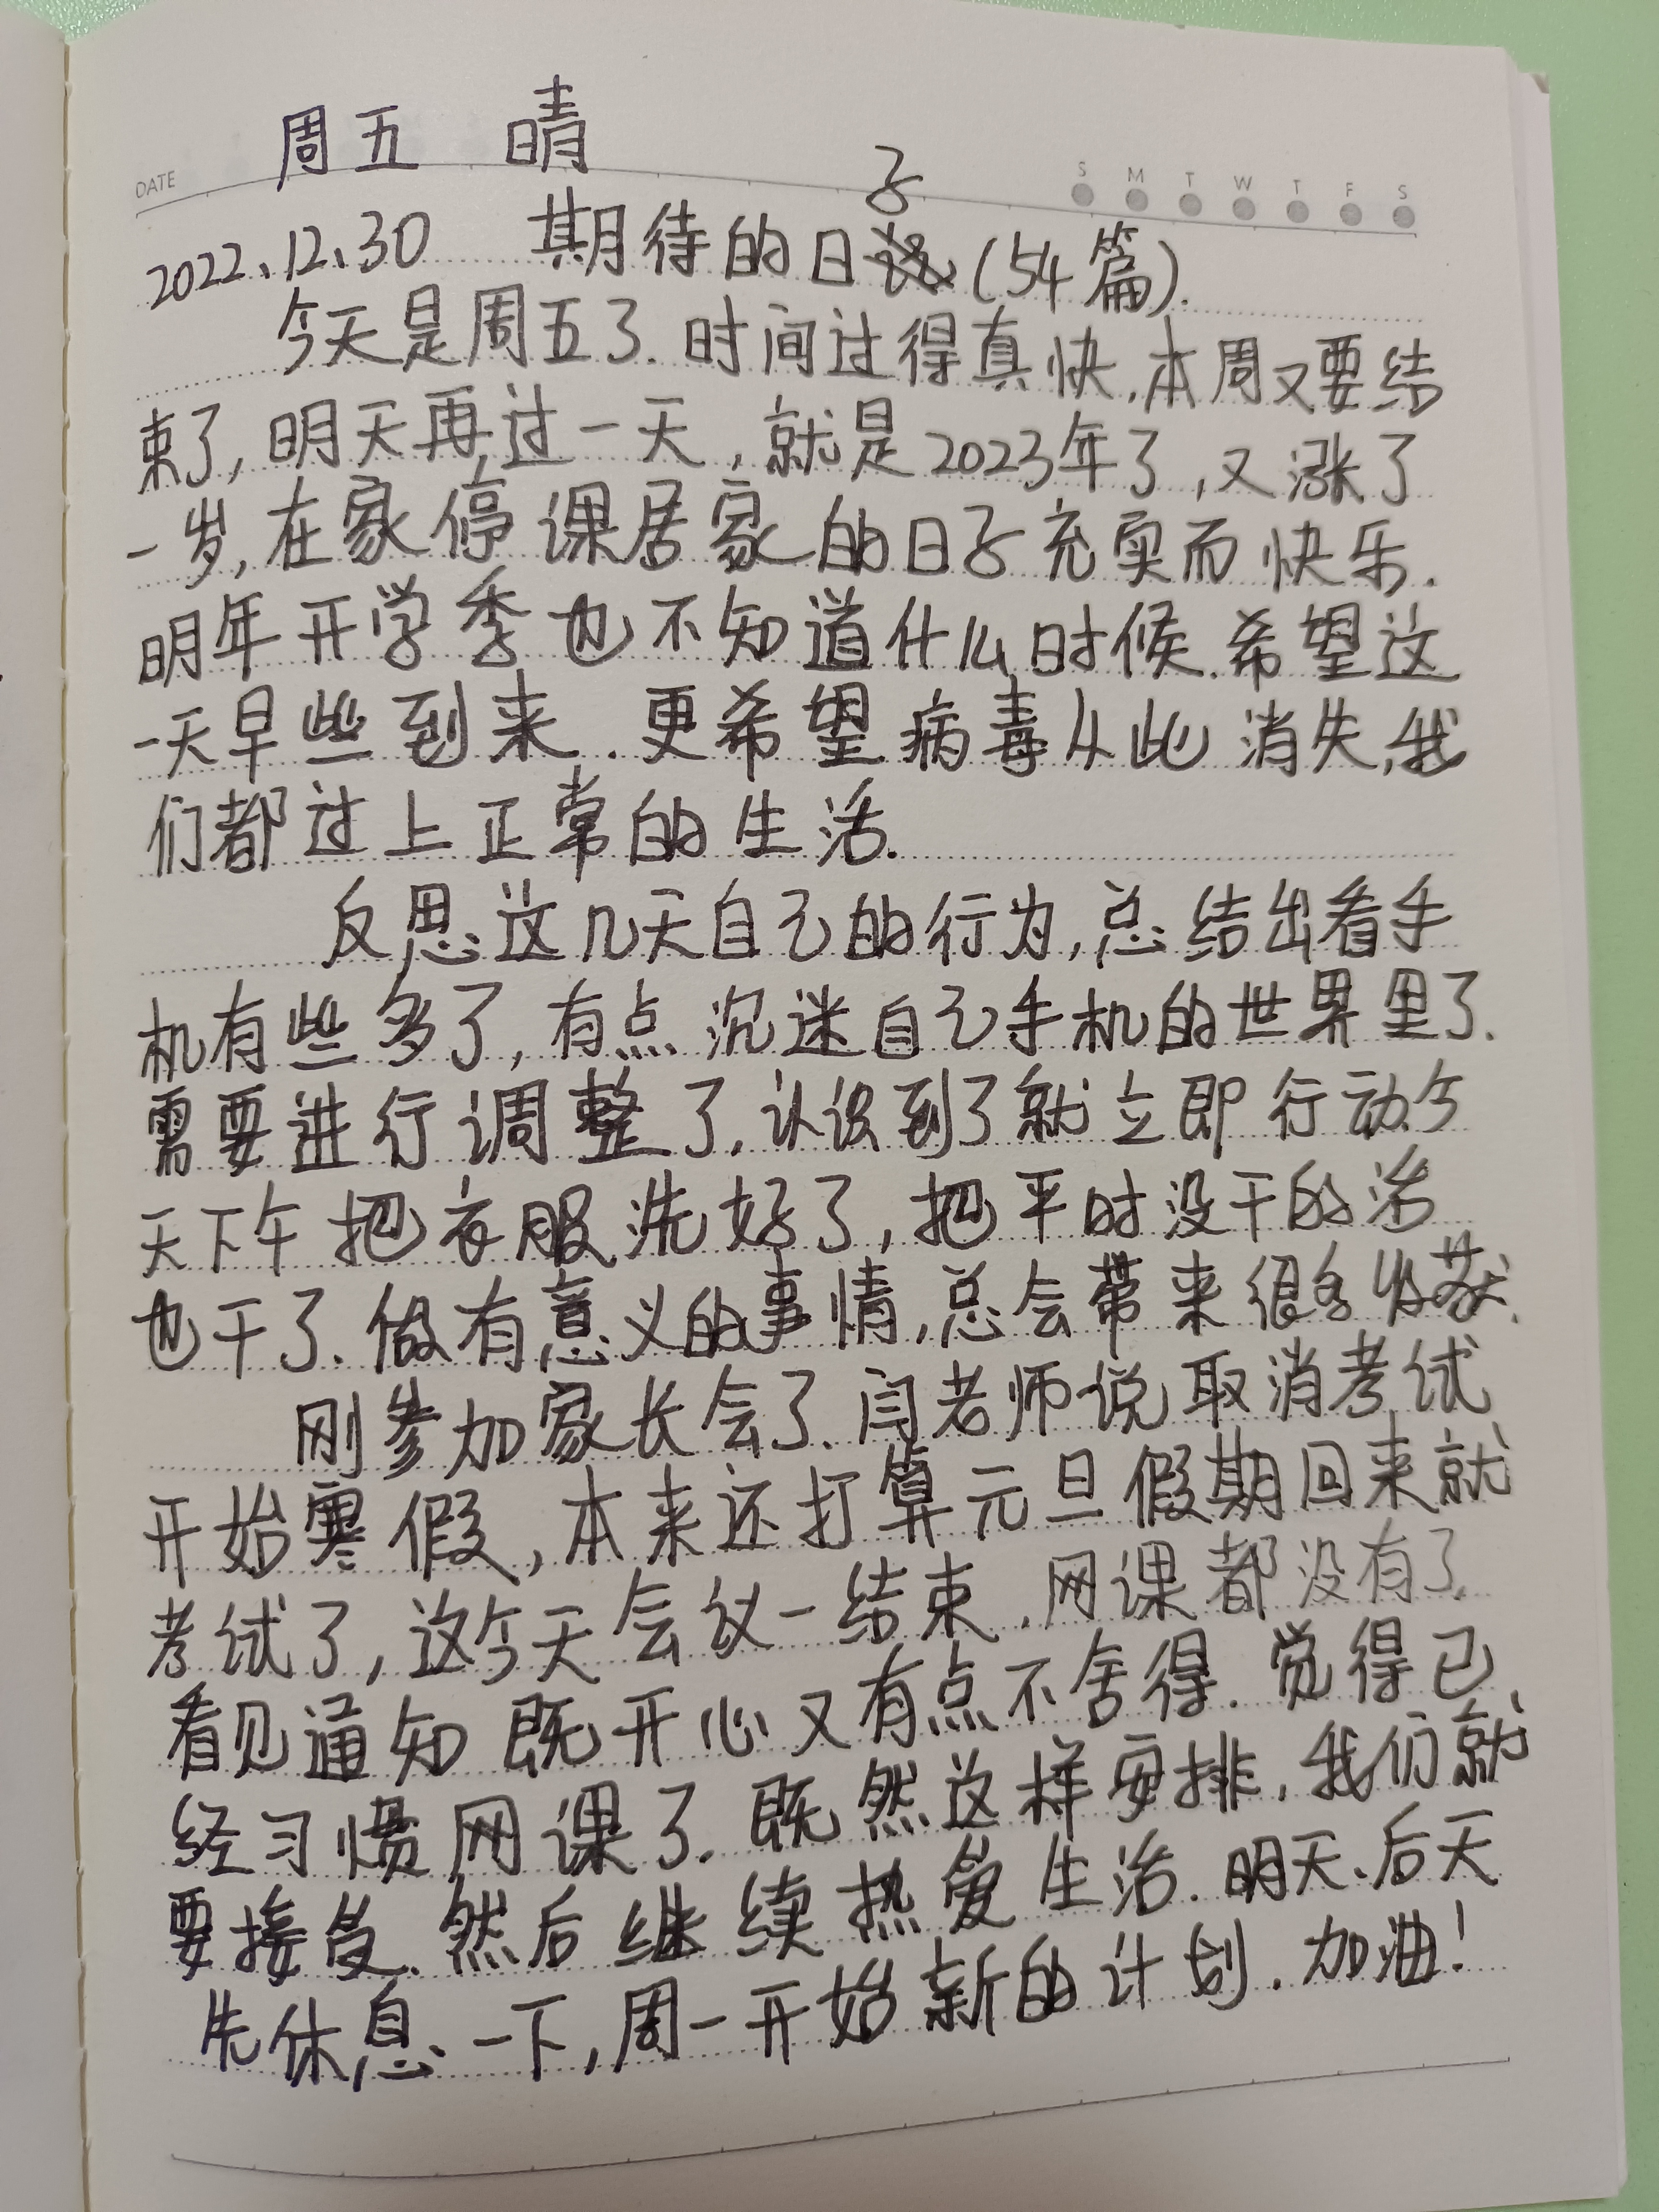 周五 晴
DATE
S M T W T F S
2022、12、30 期待的日子(54篇).
今天是周五了.时间过得真快,本周又要结
束了,明天再过一天,就是2023年了,又涨了
一岁,在家停课居家的日子充实而快乐.
明年开学季也不知道什么时候.希望这
一天早些到来.更希望病毒从此消失,我
们都过上正常的生活.
反思这几天自己的行为,总结出看手
机有些多了,有点沉迷自己手机的世界里了.
需要进行调整了,认识到了就立即行动今
天下午把衣服洗好了,把平时没干的活
也干了.做有意义的事情,总会带来很多收获.
刚参加家长会了.闫老师说取消考试
开始寒假,本来还打算元旦假期回来就
考试了,这今天会议一结束.网课都没有了.
看见通知既开心又有点不舍得.觉得已
经习惯网课了.既然这样安排,我们就
要接受.然后继续热爱生活.明天、后天
先休息一下,周一开始新的计划.加油!